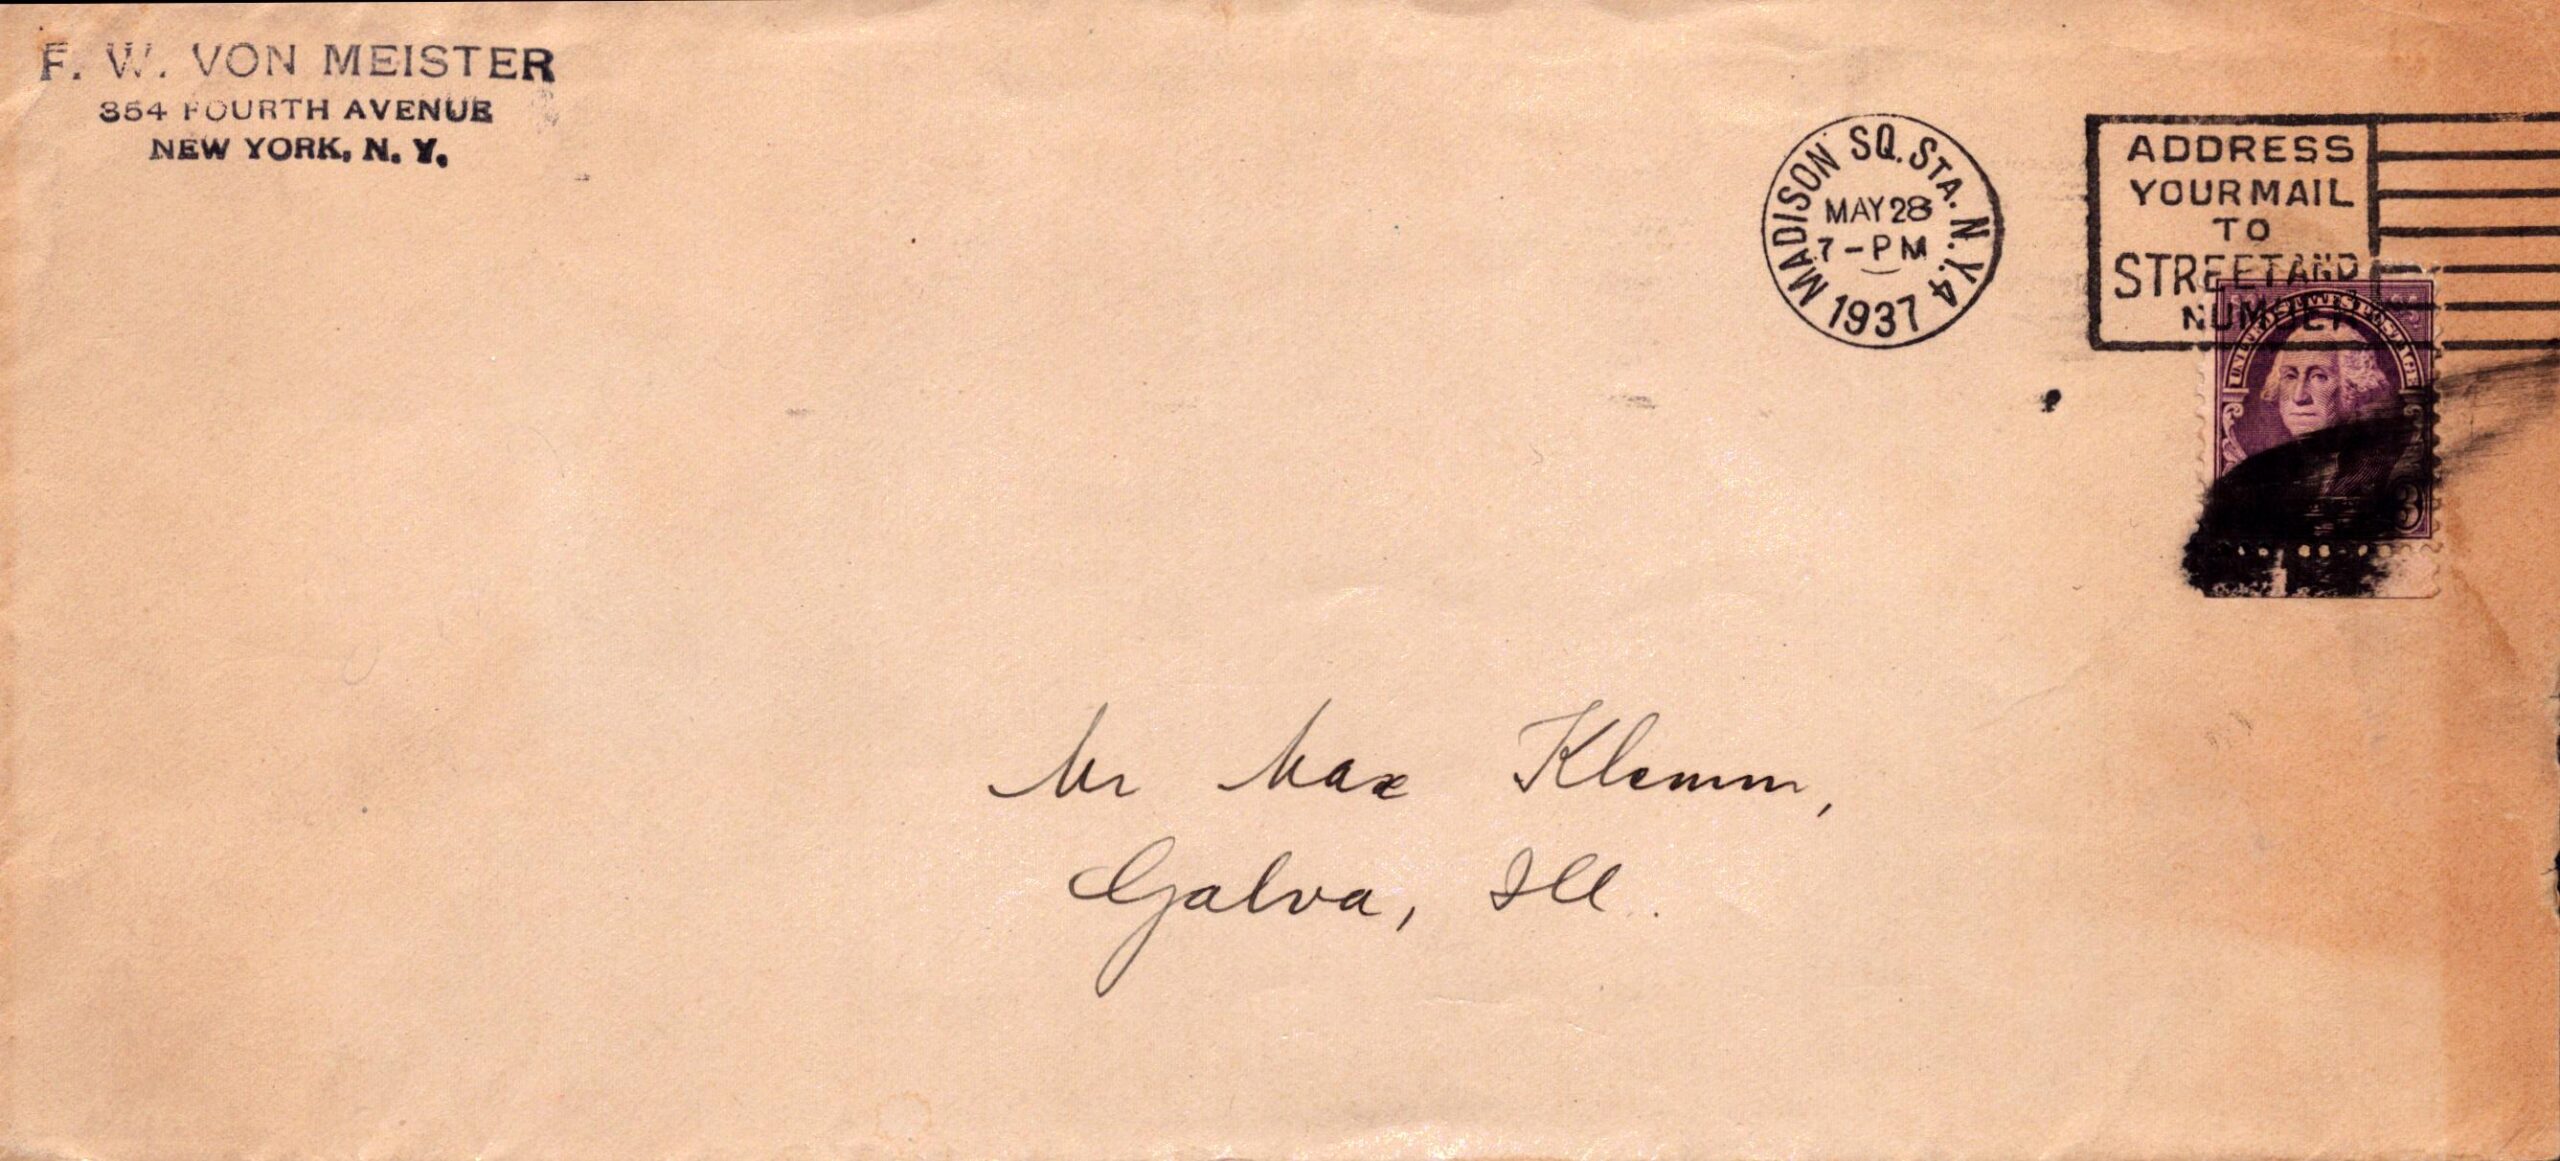 F. W. VON MEISTER
354 FOURTH AVENUE
NEW YORK, N. Y.
MADISON SQ. STA. N.Y. 4
MAY 28
7-PM
1937
ADDRESS
YOUR MAIL
TO
STREET AND
NUMBER
UNITED STATES POSTAGE
3
Mr Max Klemm,
Galva, Ill.